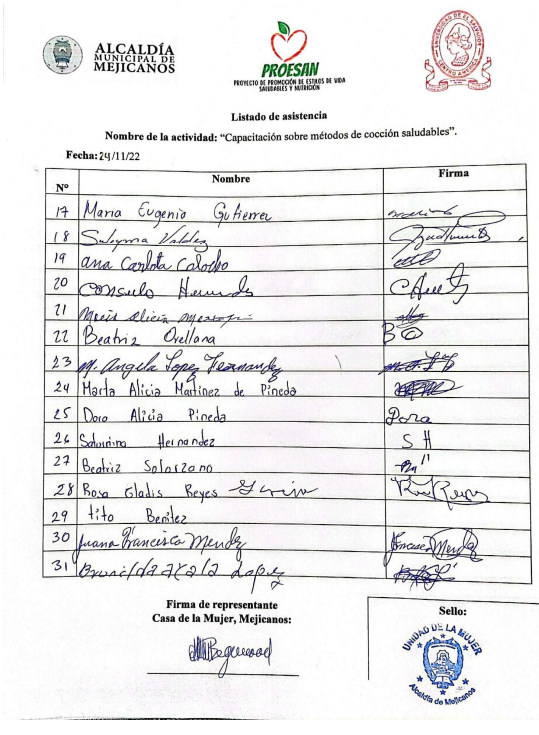 ALCALDÍA
MUNICIPAL DE
MEJICANOS
PROESAN
PROYECTO DE PROMOCIÓN DE ESTILOS DE VIDA
SALUDABLES Y NUTRICIÓN
UNIVERSIDAD DE EL SALVADOR
CENTRO AMERICA
Listado de asistencia
Nombre de la actividad: “Capacitación sobre métodos de cocción saludables”.
Fecha: 24/11/22
Nº Nombre Firma
17 Maria Eugenio Gutierrez
18 Suleyma Valdez
19 ana Carlota Colocho
20 Consuelo
21 Maria alicia
22 Beatriz Orellana B O
23 M. Angela Lopez Fernandez
24 Marta Alicia Martinez de Pineda
25 Dora Alicia Pineda Dora
26 Saturnino Hernandez S H
27 Beatriz Solorzano
28 Rosa Gladis Reyes
29 tito Benitez
30 Juana Francisca Mendez Francisca Mendez
31 Brunilda Lopez
Firma de representante
Casa de la Mujer, Mejicanos:
Sello:
UNIDAD DE LA MUJER
Alcaldía de Mejicanos